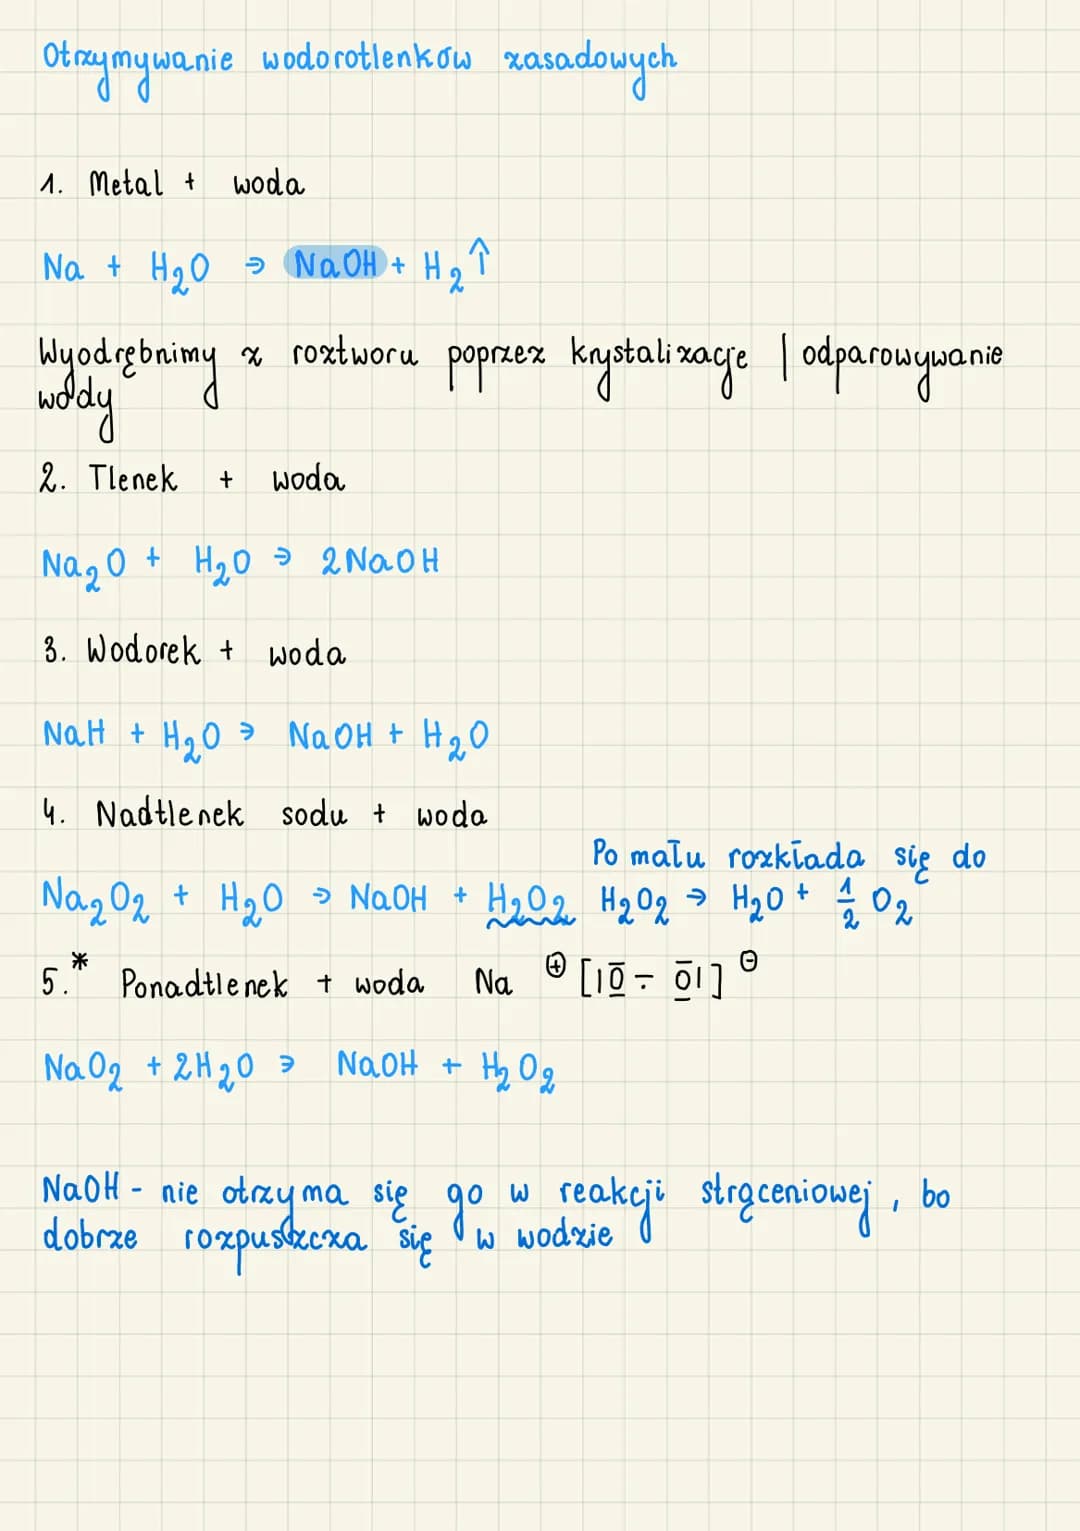 Otrzymywanie wodorotlenków zasadowych
1. Metal + woda
Na + H₂O → NaOH + H₂↑
Wyodrębnimy z roztworu poprzez krystalizacje | odparowywanie
wody
2. Tlenek + woda
Na₂O + H₂O → 2NaOH
3. Wodorek + woda
NaH + H₂O → NaOH + H₂O
4. Nadtlenek sodu + woda
Po mału rozkłada się do
Na₂O₂ + H₂O → NaOH + H₂O₂ H₂O₂ → H₂O + 1/2 O₂
5.* Ponadtlenek + woda Na ⊕ [|O̅ ∸ O̅|] ⊖
NaO₂ + 2H₂O → NaOH + H₂O₂
NaOH - nie otrzyma się go w reakcji strąceniowej, bo
dobrze rozpuszcza się w wodzie